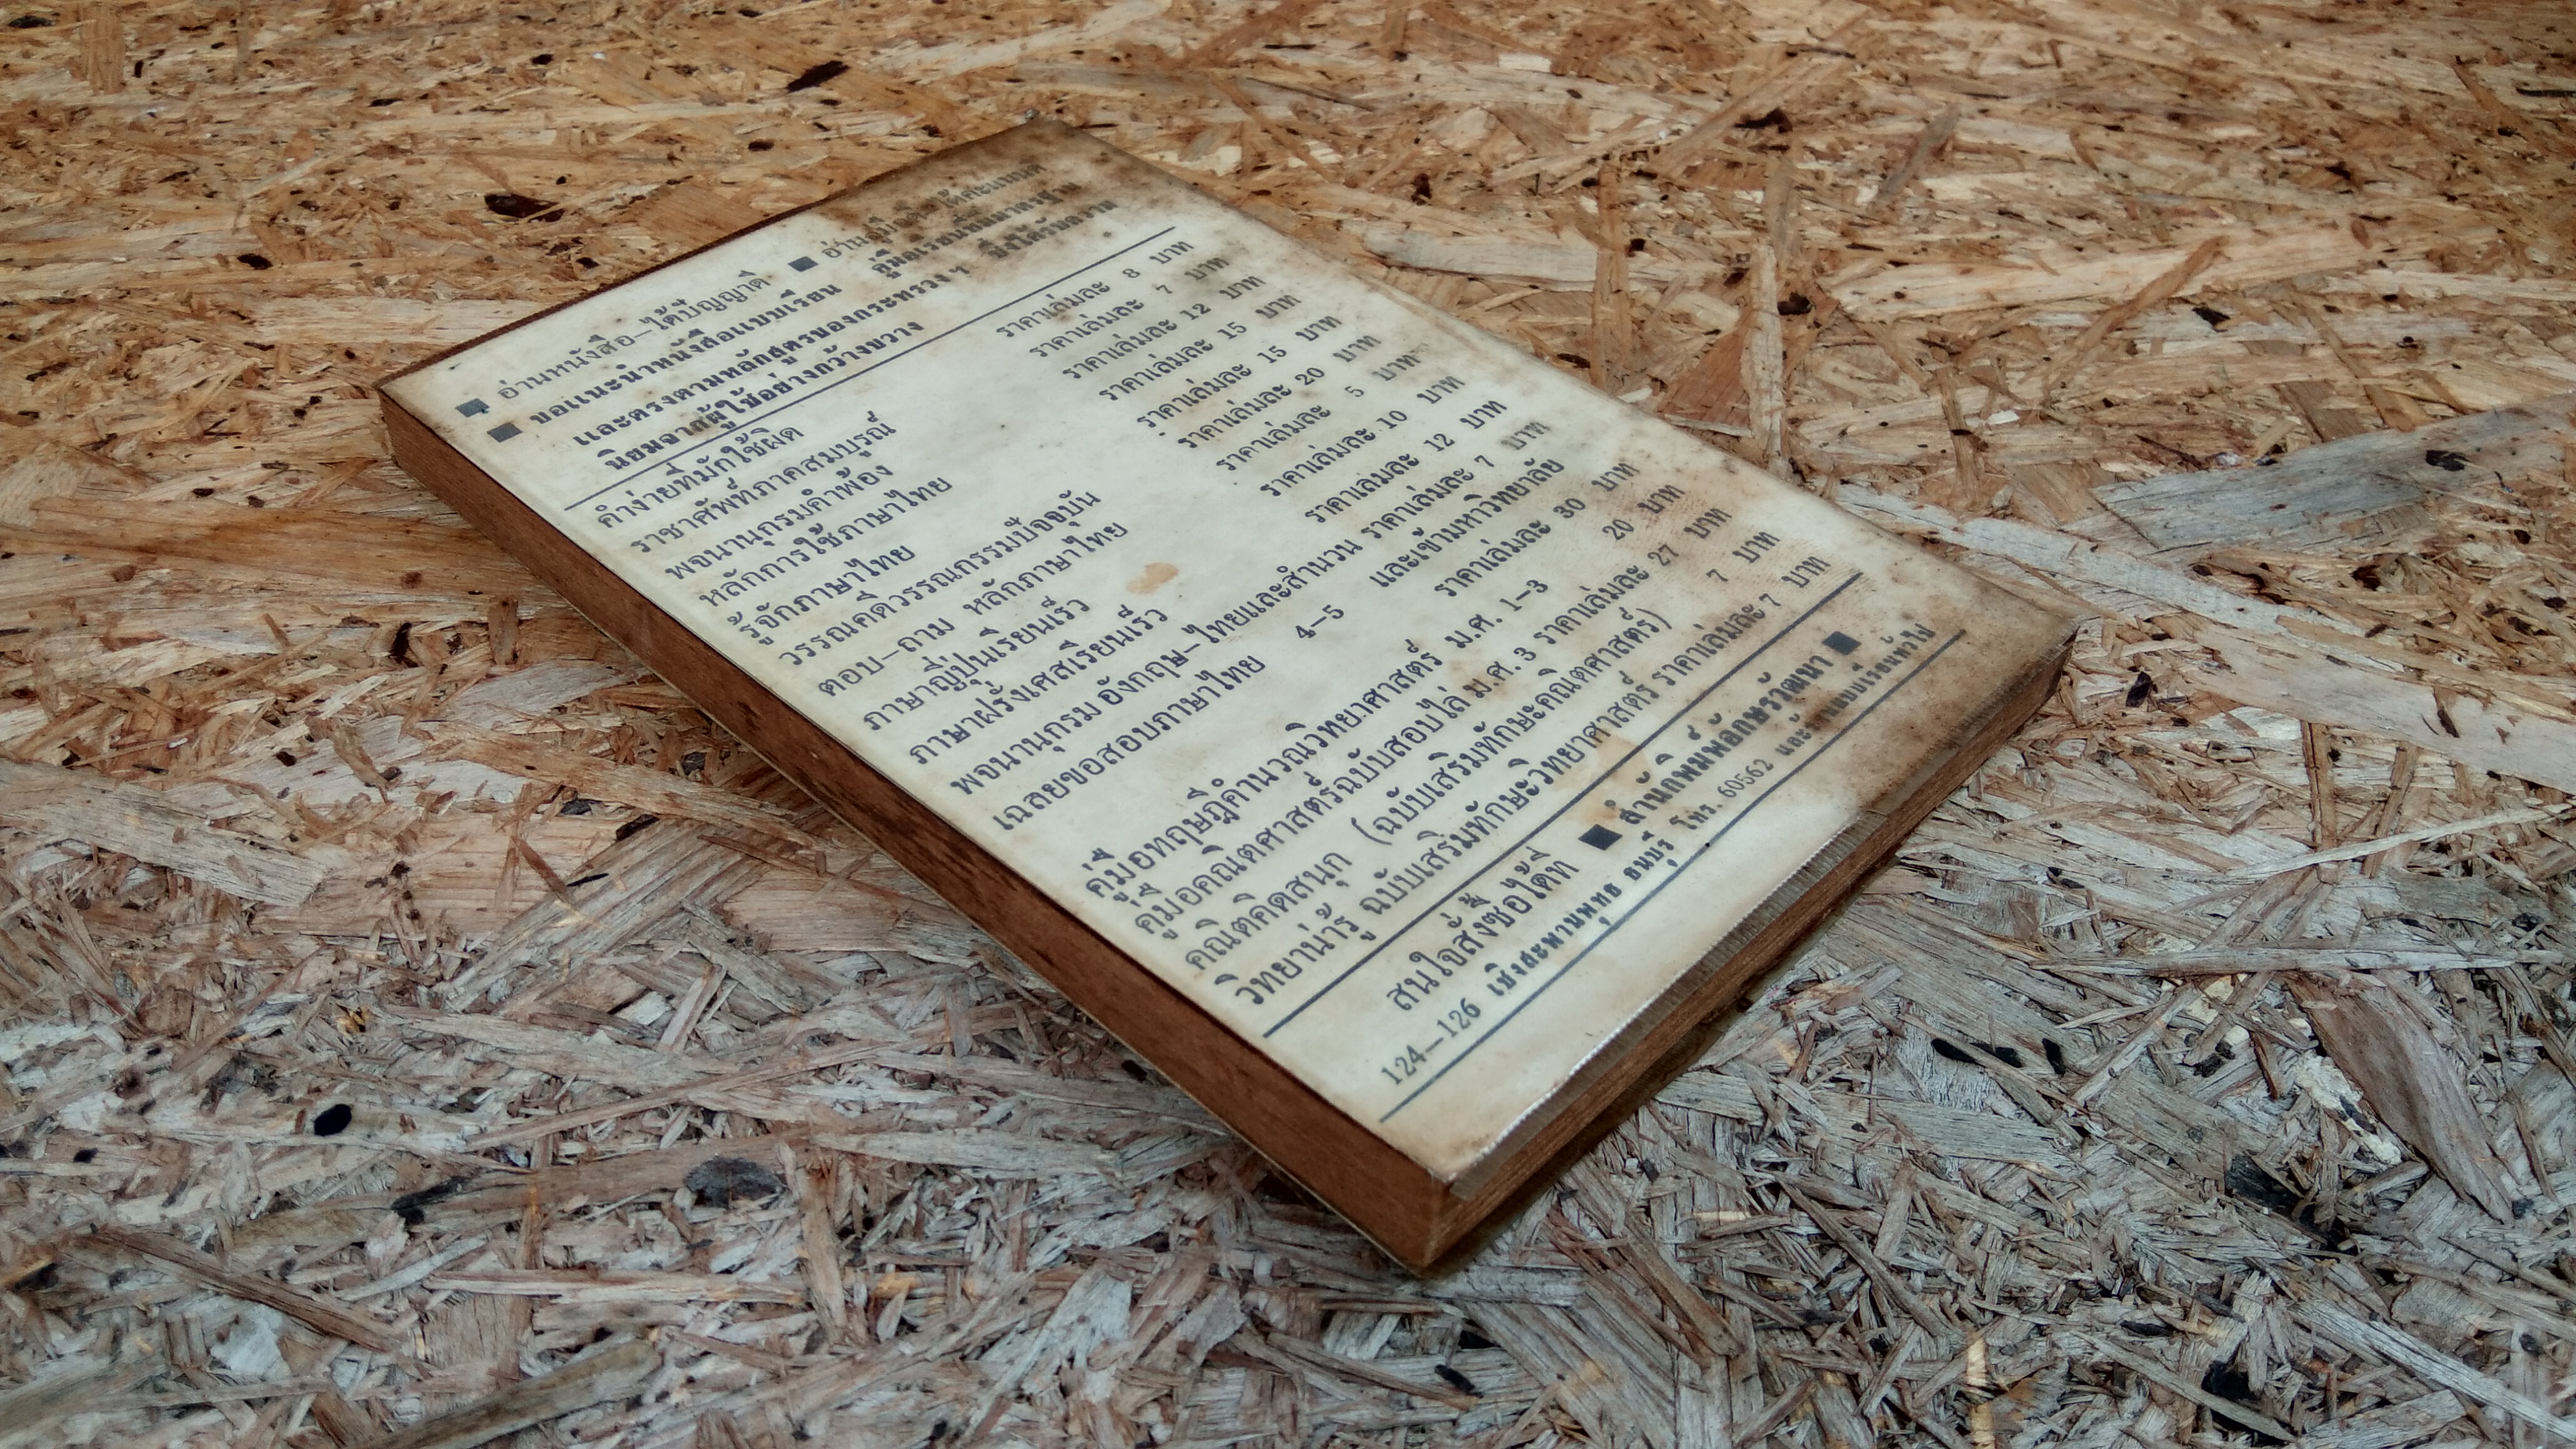 ■ อ่านหนังสือ–ได้ปัญญาดี ■ อ่านคู่มือ
■ ขอแนะนำหนังสือแบบเรียน คู่มือเรียนที่ได้มาตรฐาน
และตรงตามหลักสูตรของกระทรวง ฯ ซึ่งได้รับความ
นิยมจากผู้ใช้อย่างกว้างขวาง
คำง่ายที่มักใช้ผิด ราคาเล่มละ 8 บาท
ราชาศัพท์ภาคสมบูรณ์ ราคาเล่มละ 7 บาท
พจนานุกรมคำพ้อง ราคาเล่มละ 12 บาท
หลักการใช้ภาษาไทย ราคาเล่มละ 15 บาท
รู้จักภาษาไทย ราคาเล่มละ 15 บาท
วรรณคดีวรรณกรรมปัจจุบัน ราคาเล่มละ 20 บาท
ตอบ–ถาม หลักภาษาไทย ราคาเล่มละ 5 บาท
ภาษาญี่ปุ่นเรียนเร็ว ราคาเล่มละ 10 บาท
ภาษาฝรั่งเศสเรียนเร็ว ราคาเล่มละ 12 บาท
พจนานุกรม อังกฤษ–ไทยและสำนวน ราคาเล่มละ 7 บาท
เฉลยข้อสอบภาษาไทย 4–5 และเข้ามหาวิทยาลัย
ราคาเล่มละ 30 บาท
คู่มือทฤษฎีคำนวณวิทยาศาสตร์ ม.ศ. 1–3 20 บาท
คู่มือคณิตศาสตร์ฉบับสอบไล่ ม.ศ. 3 ราคาเล่มละ 27 บาท
คณิตคิดสนุก (ฉบับเสริมทักษะคณิตศาสตร์) 7 บาท
วิทยาน่ารู้ ฉบับเสริมทักษะวิทยาศาสตร์ ราคาเล่มละ 7 บาท
สนใจสั่งซื้อได้ที่ ■ สำนักพิมพ์อักษรวัฒนา ■
124–126 เชิงสะพานพุทธ ธนบุรี โทร. 60562 และร้านแบบเรียนทั่วไป